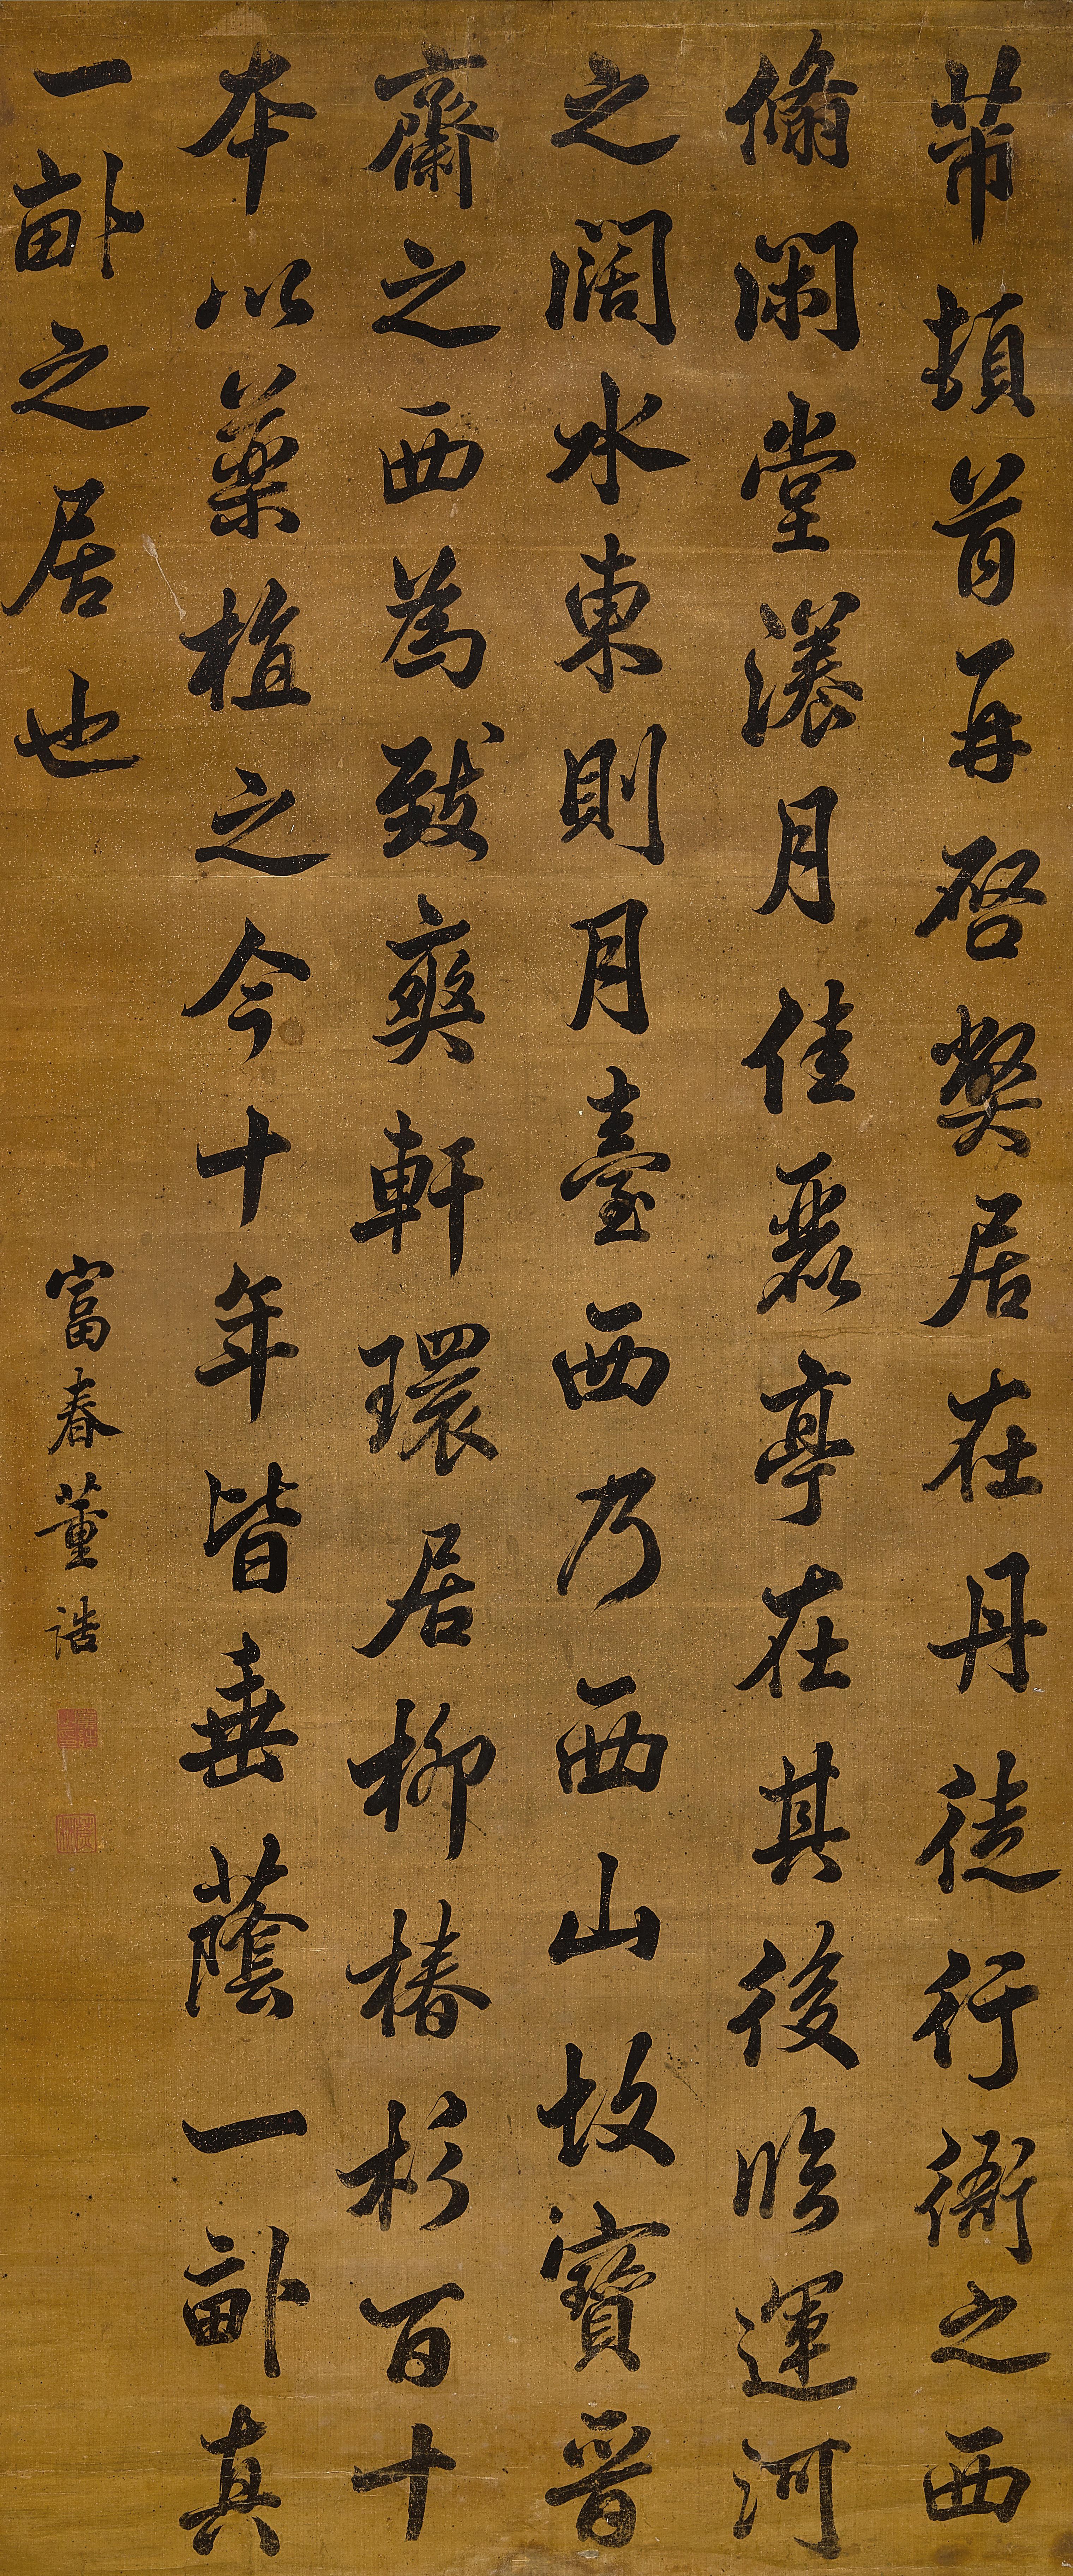 芾頓首再啓弊居在丹徒行衙之西
翛閑堂漾月佳麗亭在其後臨運河
之闊水東則月臺西乃西山故寶晉
齋之西為致爽軒環居柳椿杉百十
本以藥植之今十年皆垂蔭一畝真
一畝之居也
富春董誥